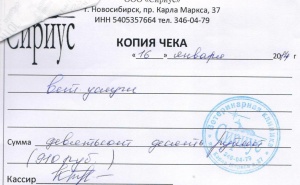 ООО «Сириус»
г. Новосибирск, пр. Карла Маркса, 37
ИНН 5405357664 тел. 346-04-79
Сириус
КОПИЯ ЧЕКА
«16» января 2014 г.
Вет услуги
Сумма девятьсот десять рублей
(910 руб.)
Кассир